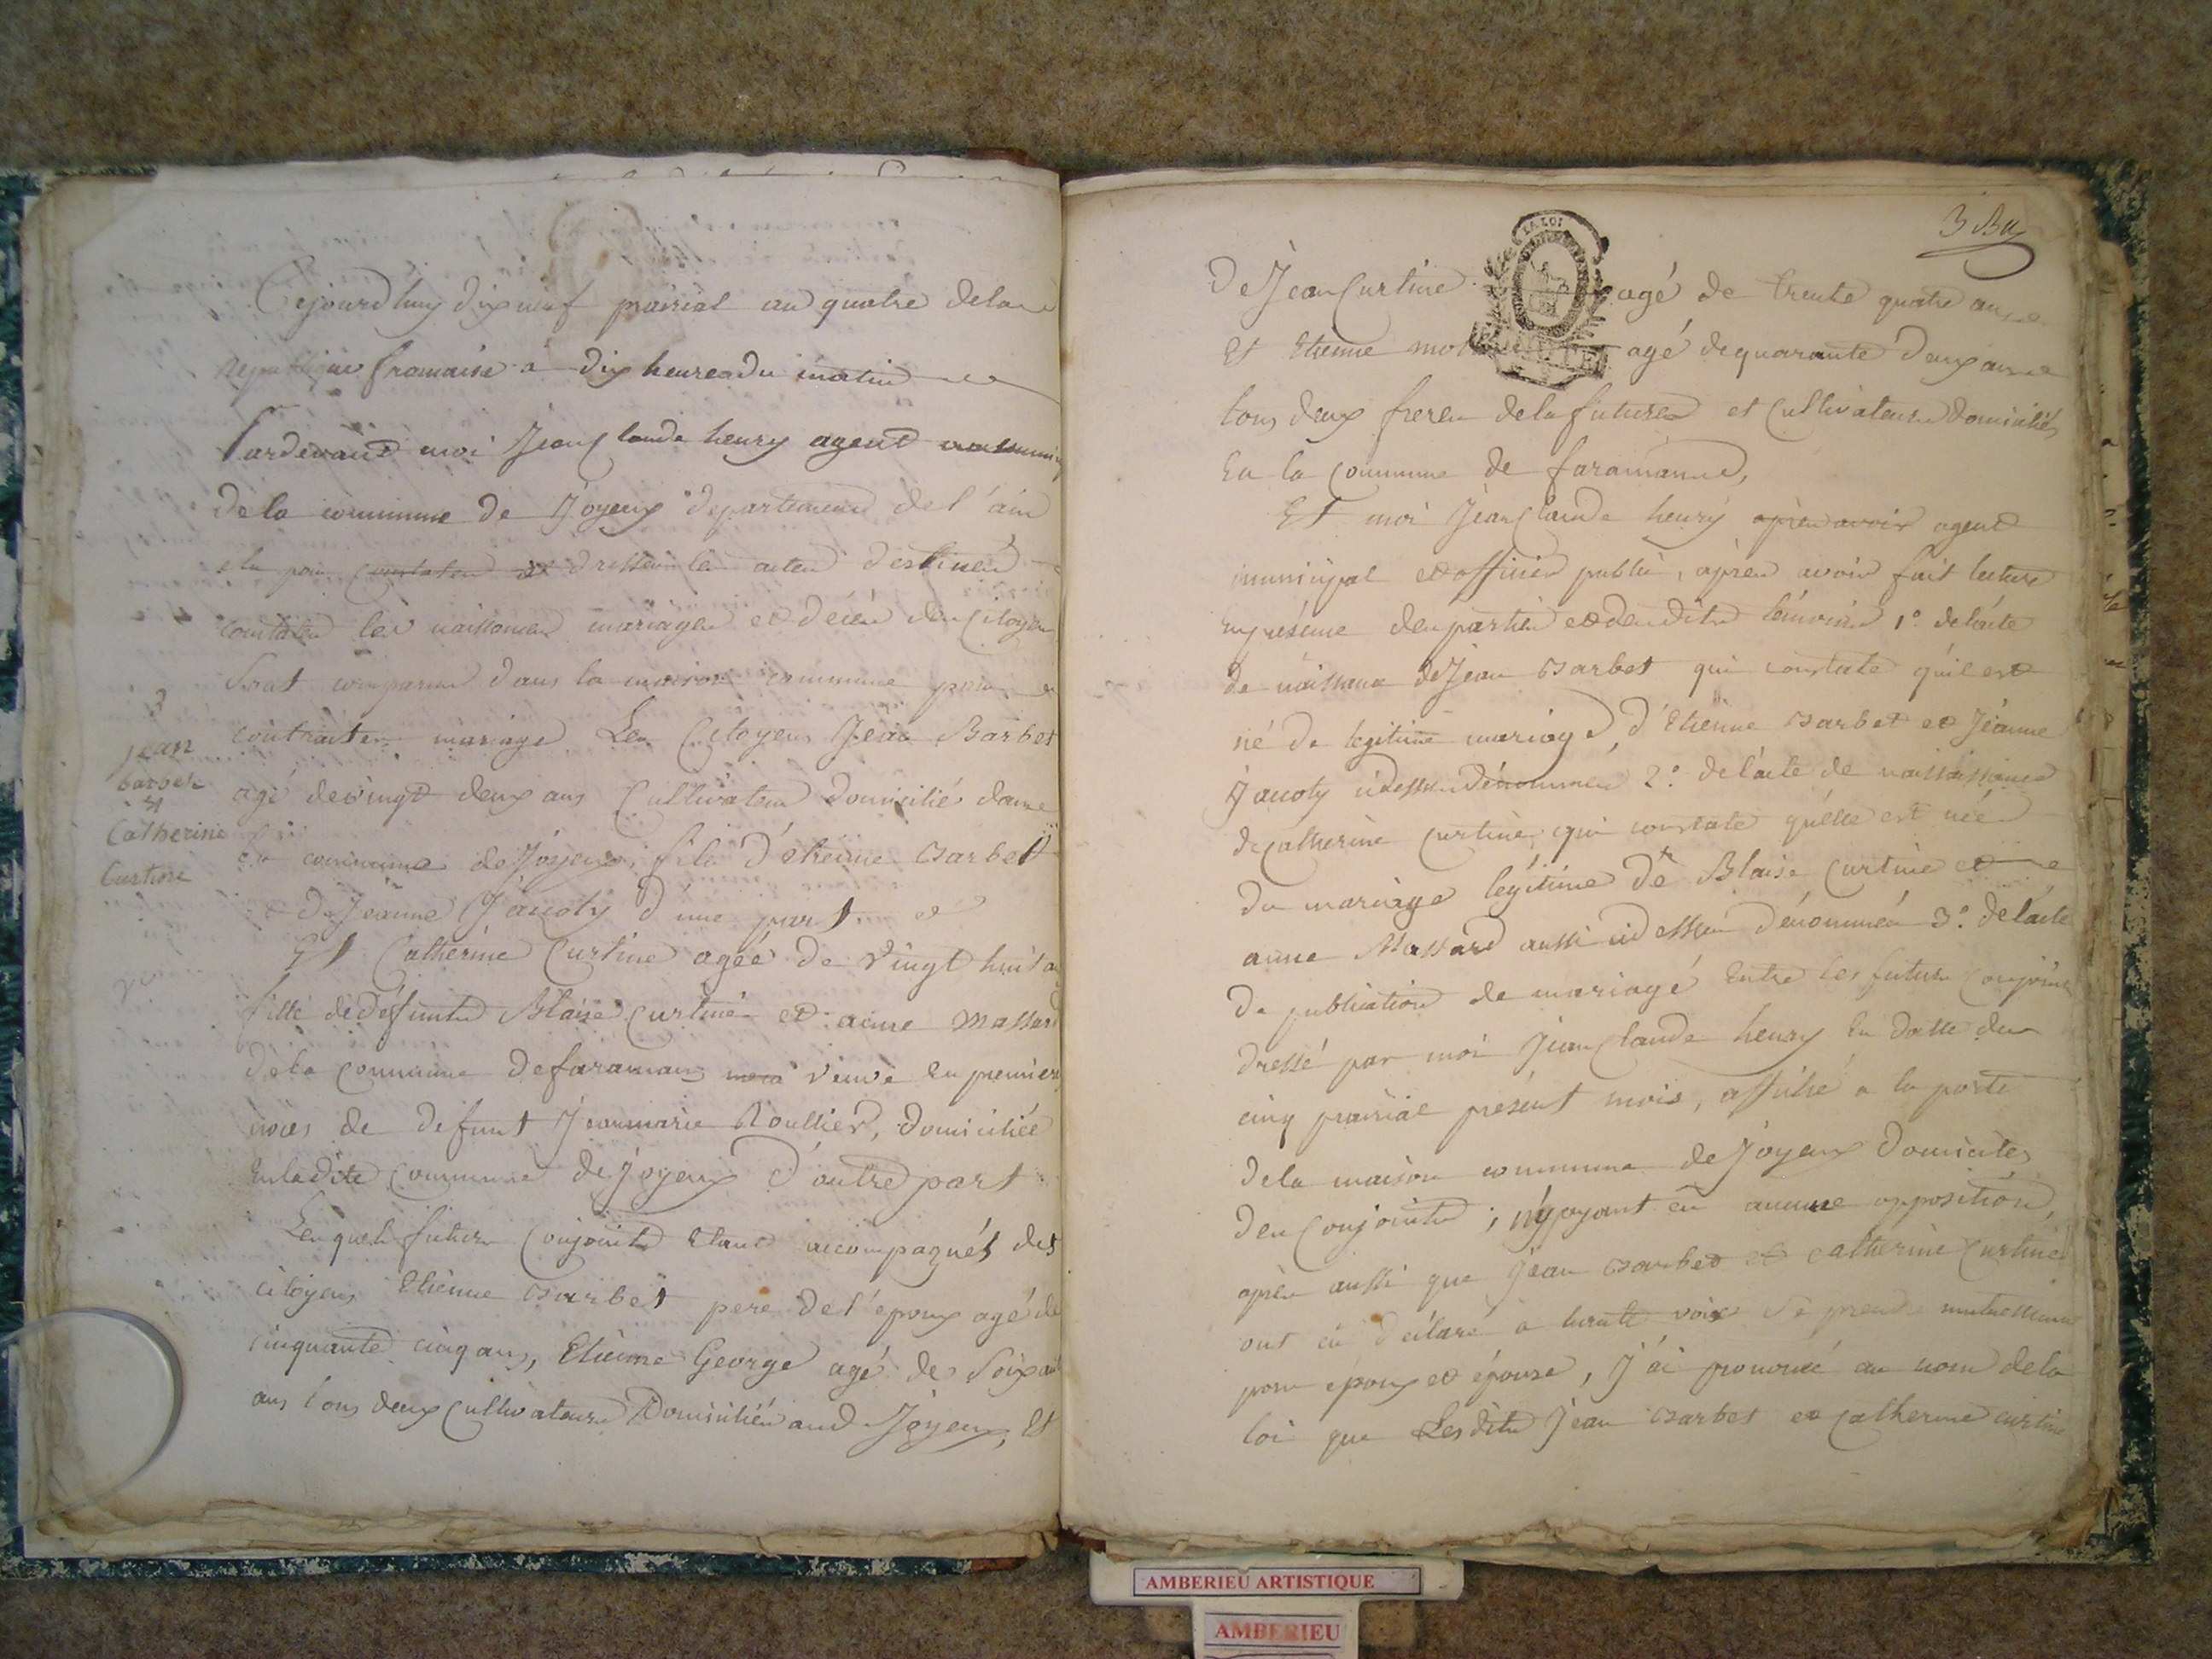 Cejourdhuy dix neuf prairial an quatre de la
république francaise à dix heures du matin
Pardevant moi Jean Claude henry agent
de la commune de Joyeux departement de l'ain
elu pour constater et dresser les actes destinés
constater les naissances mariages et décés des Citoyens
Sont comparus dans la maison commune pour
contracter mariage Les Citoyens Jean Barbet
agé de vingt deux ans Cultivateur domicilié dans
commune de Joyeux, fils d'etienne Barbet
& de Jeanne Jacoty d'une part
Et Catherine Curtine agée de vingt huit
fille de défunts Blaise Curtine et anne Massard
de la Commune de faramans veuve en premier
noces de defunt Jeanmarie Roullier, domiciliée
en la dite Commune de Joyeux d'autre part
Lesquels futurs Conjoints Etant accompagnés des
citoyens Etienne Barbet pere de l'epoux agé de
cinquante cinq ans, Etienne George agé de
ans tous deux Cultivateurs Domiciliés aud Joyeux, Et
3
jean
barbet
et
Catherine
Curtine
LA LOI
De Jean Curtine agé de trente quatre ans
Et Etienne agé de quarante deux ans
tous deux freres de la future et Cultivateurs domiciliés
En la Commune de faramans,
Et moi Jean Claude henry apres avoir agent
municipal et officier public, après avoir fait lecture
En présence des parties et desdits témoins 1° de l'acte
de naissance de Jean Barbet qui constate qu'il est
né de legitime mariage d'Etienne Barbet et Jeanne
Jacoty cidessus dénommés 2° de l'acte de
de catherine Curtine qui constate qu'elle est née
du mariage legitime de Blaise Curtine et
anne Massard aussi cidessus dénommés 3° de l'acte
de publication de mariage Entre les futurs Conjoints
dressé par moi Jean Claude henry En datte du
cinq prairial présent mois, affiché a la porte
de la maison commune de Joyeux domicile
des Conjoints ; n'y ayant eu aucune opposition,
après aussi que Jean Barbet et catherine Curtine
ont eu déclaré a haute voix Se prendre mutuellement
pour époux et épouse, J'ai prononcé au nom de la
loi que Lesdits Jean Barbet et Catherine curtine
AMBERIEU ARTISTIQUE
AMBERIEU